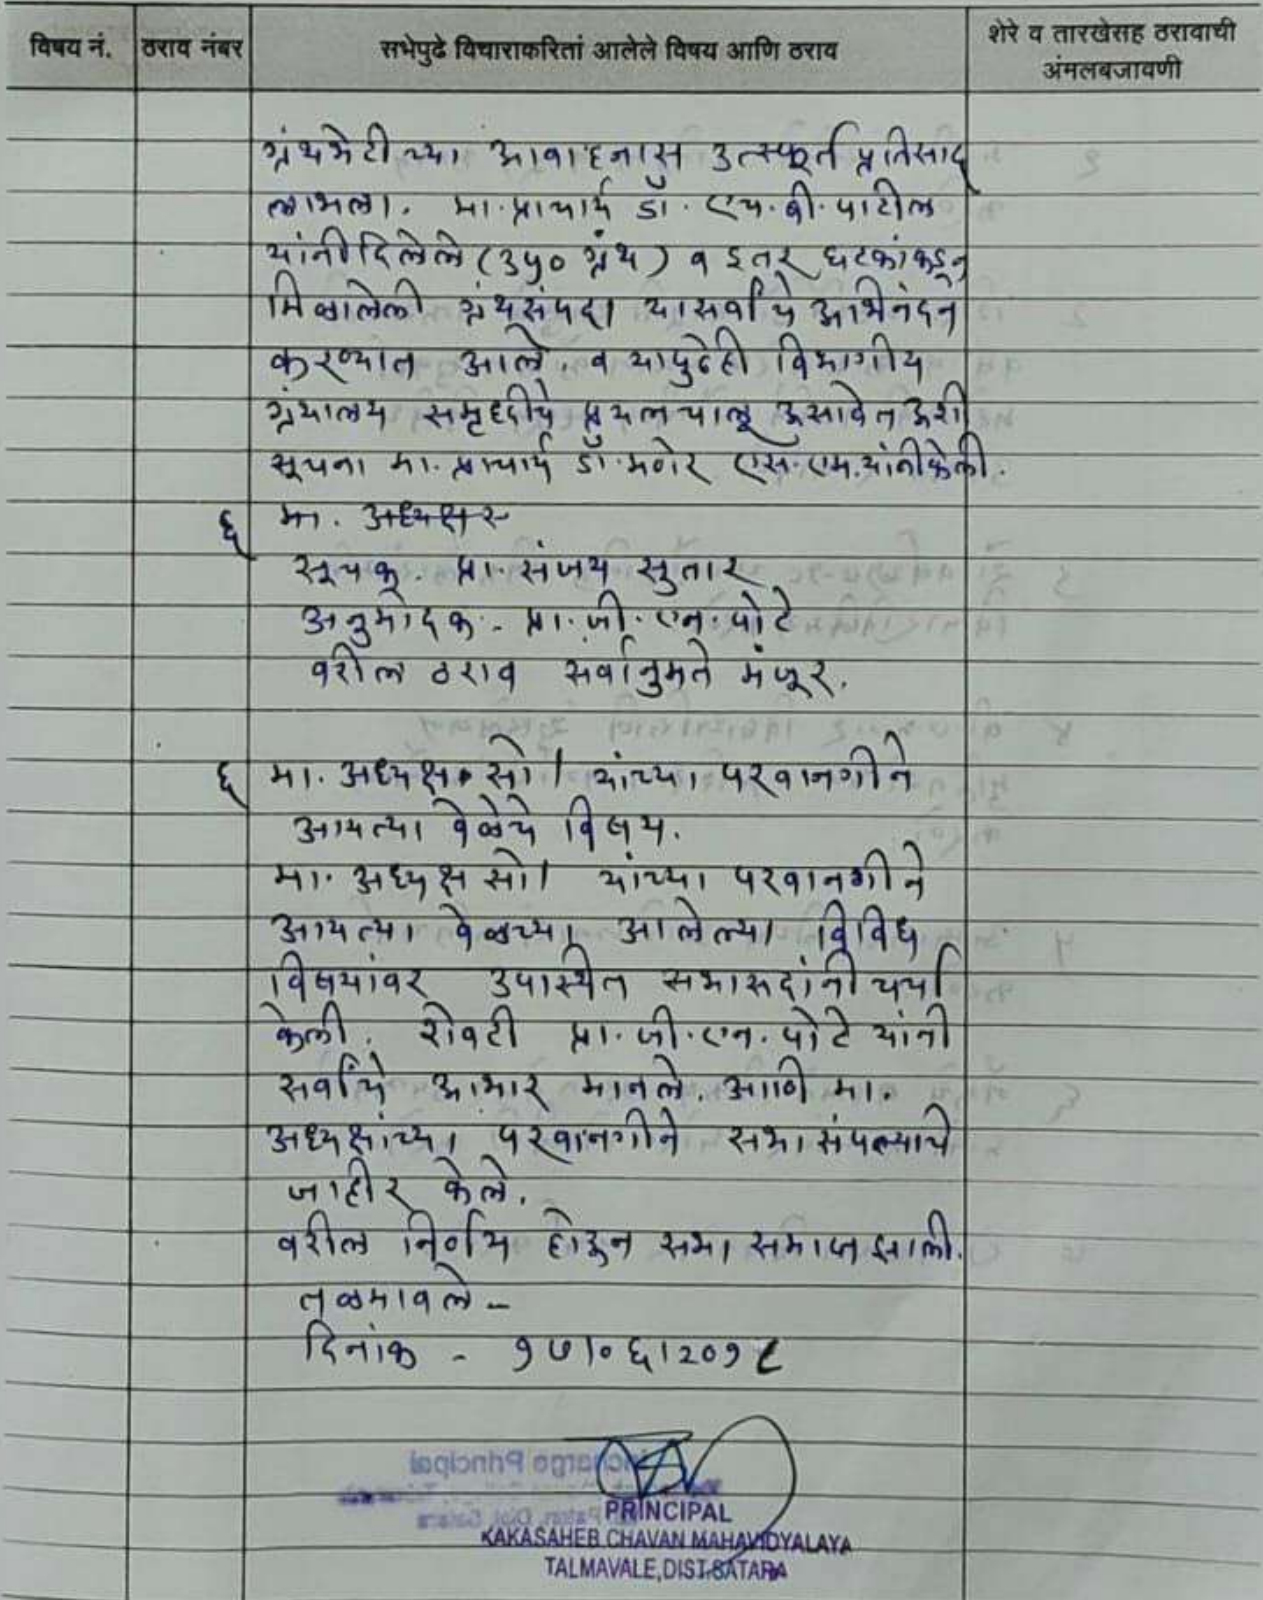 विषय नं.
ठराव नंबर
सभेपुढे विचाराकरितां आलेले विषय आणि ठराव
शेरे व तारखेसह ठरावाची
अंमलबजावणी
ग्रंथभेटीच्या आवाहनास उत्स्फूर्त प्रतिसाद
लाभला. मा. प्राचार्य डॉ. एच. बी. पाटील
यांनी दिलेले (३५० ग्रंथ) व इतर घटकांकडून
मिळालेली ग्रंथसंपदा या सर्वांचे अभिनंदन
करण्यात आले. व यापुढेही विभागीय
ग्रंथालय समृद्धीचे प्रयत्न चालू असावेत अशी
सूचना मा. प्राचार्य डॉ. मणेर एस. एम. यांनी केली.
६ मा. अध्यक्ष स
सूचक. प्रा. संजय सुतार
अनुमोदक - प्रा. जी. एन. पोटे
वरील ठराव सर्वानुमते मंजूर.
६ मा. अध्यक्ष सो। यांच्या परवानगीने
आयत्या वेळेचे विषय.
मा. अध्यक्ष सो। यांच्या परवानगीने
आयत्या वेळच्या आलेल्या विविध
विषयांवर उपास्थित सभासदांनी चर्चा
केली. शेवटी प्रा. जी. एन. पोटे यांनी
सर्वांचे आभार मानले. आणि मा.
अध्यक्षांच्या परवानगीने सभा संपल्याचे
जाहीर केले.
वरील निर्णय होऊन सभा समाप्त झाली.
तळमावले -
दिनांक - १७।०६।२०१८
Incharge Principal
PRINCIPAL
KAKASAHEB CHAVAN MAHAVIDYALAYA
TALMAVALE, DIST. SATARA